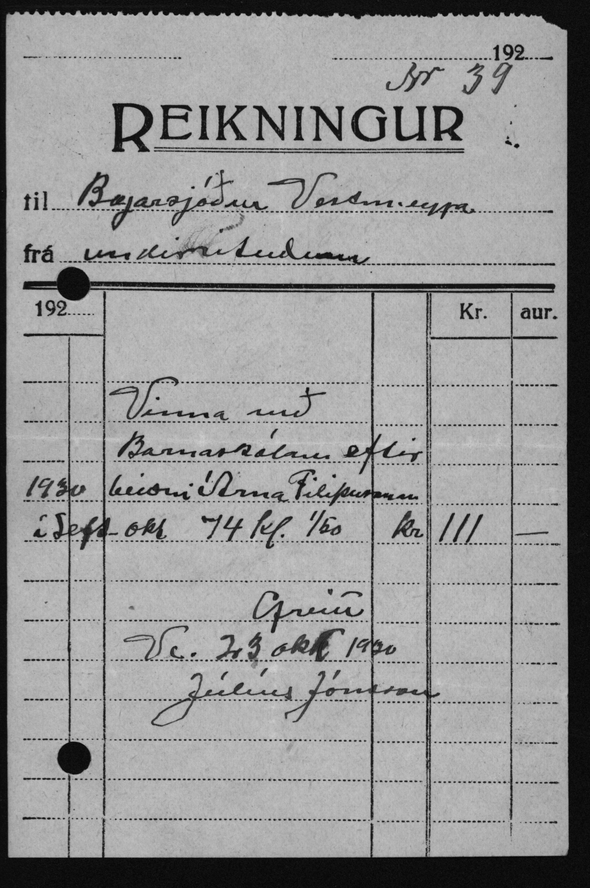 192
Nr 39
REIKNINGUR
til Bæjarsjóður Vestm.eyja
frá undirrituðum
192 Kr. aur.
Vinna við
Barnaskólann eftir
1930 beiðni Árna Filipussonar
í Sept okt 74 kl. 1/50 kr 111 —
Greitt
Ve. 23 okt 1930
Júlíus Jónsson